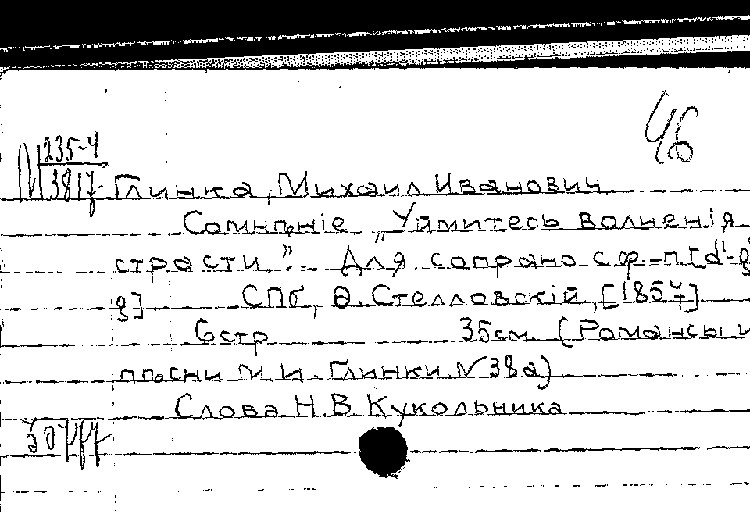 46
М 235-4
3817
Глинка, Михаил Иванович
Сомнѣніе „Уймитесь волненія
страсти". Для сопрано с ф-п [d'-g
g] СПб, Ѳ. Стелловскій, [1857]
6 стр 35 см (Романсы и
пѣсни М. И. Глинки. № 38а)
Слова Н. В. Кукольника